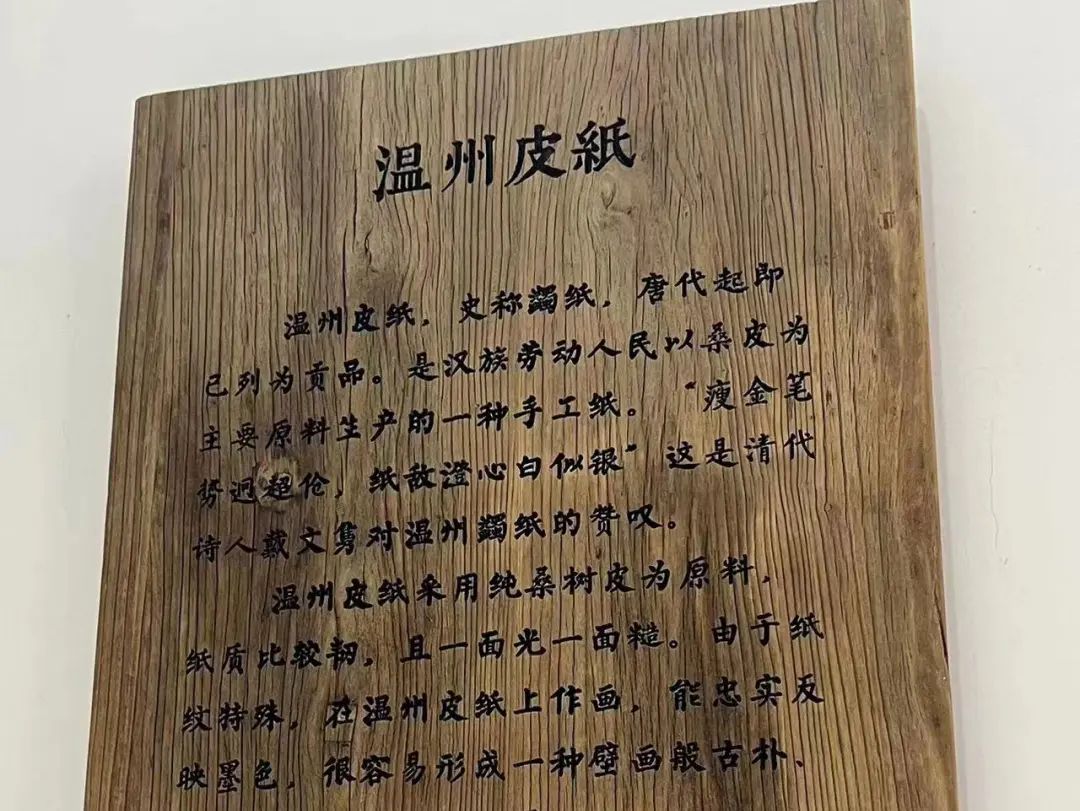 温州皮紙
温州皮纸，史称蠲纸，唐代起即
已列为贡品。是汉族劳动人民以桑皮为
主要原料生产的一种手工纸。“瘦金笔
势迥超伦，纸敌澄心白似银”这是清代
诗人戴文隽对温州蠲纸的赞叹。
温州皮纸采用纯桑树皮为原料，
纸质比较韧，且一面光一面糙。由于纸
纹特殊，在温州皮纸上作画，能忠实反
映墨色，很容易形成一种壁画般古朴、